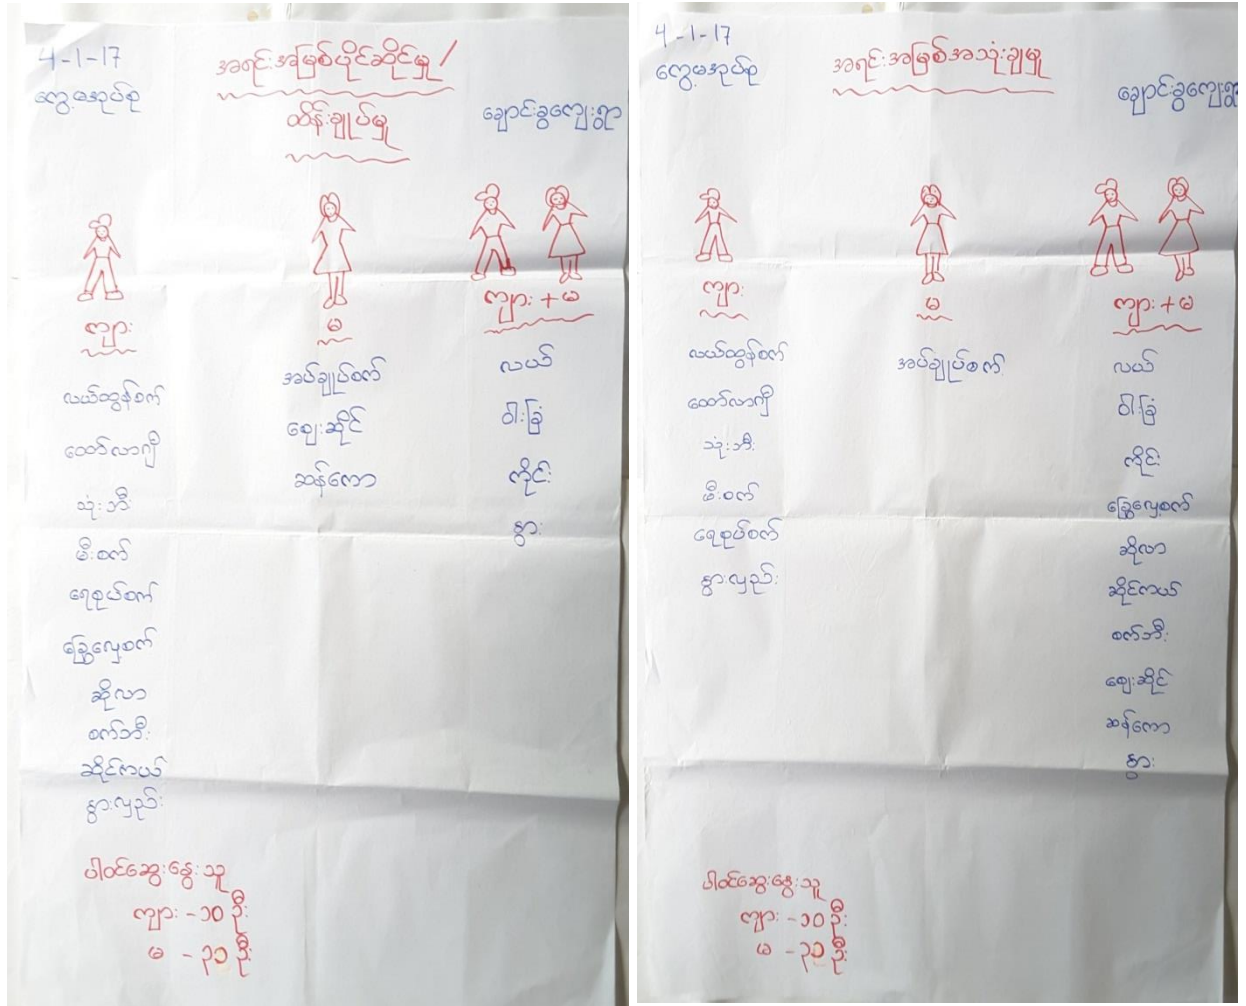 4-1-17
ကွေ့မအုပ်စု
အရင်းအမြစ်ပိုင်ဆိုင်မှု /
ထိန်းချုပ်မှု
ချောင်းခွကျေးရွာ
ကျား
မ
ကျား + မ
လယ်ထွန်စက်
ထော်လာဂျီ
သုံးဘီး
မီးစက်
ရေစုပ်စက်
ခြွေလှေ့စက်
ဆိုလာ
စက်ဘီး
ဆိုင်ကယ်
နွားလှည်း
အပ်ချုပ်စက်
ဈေးဆိုင်
ဆန်ကော
လယ်
ဝါးခြံ
ကိုင်း
နွား
ပါဝင်ဆွေးနွေးသူ
ကျား - ၁၀ ဦး
မ - ၃၁ ဦး
4-1-17
ကွေ့မအုပ်စု
အရင်းအမြစ်အသုံးချမှု
ချောင်းခွကျေးရွာ
ကျား
မ
ကျား + မ
လယ်ထွန်စက်
ထော်လာဂျီ
သုံးဘီး
မီးစက်
ရေစုပ်စက်
နွားလှည်း
အပ်ချုပ်စက်
လယ်
ဝါးခြံ
ကိုင်း
ခြွေလှေ့စက်
ဆိုလာ
ဆိုင်ကယ်
စက်ဘီး
ဈေးဆိုင်
ဆန်ကော
နွား
ပါဝင်ဆွေးနွေးသူ
ကျား - ၁၀ ဦး
မ - ၃၁ ဦး